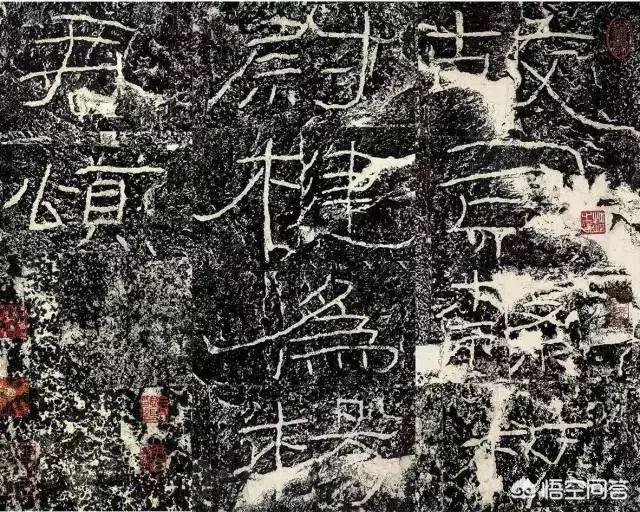 故司隸校
尉楗為楊
君頌
悟空问答